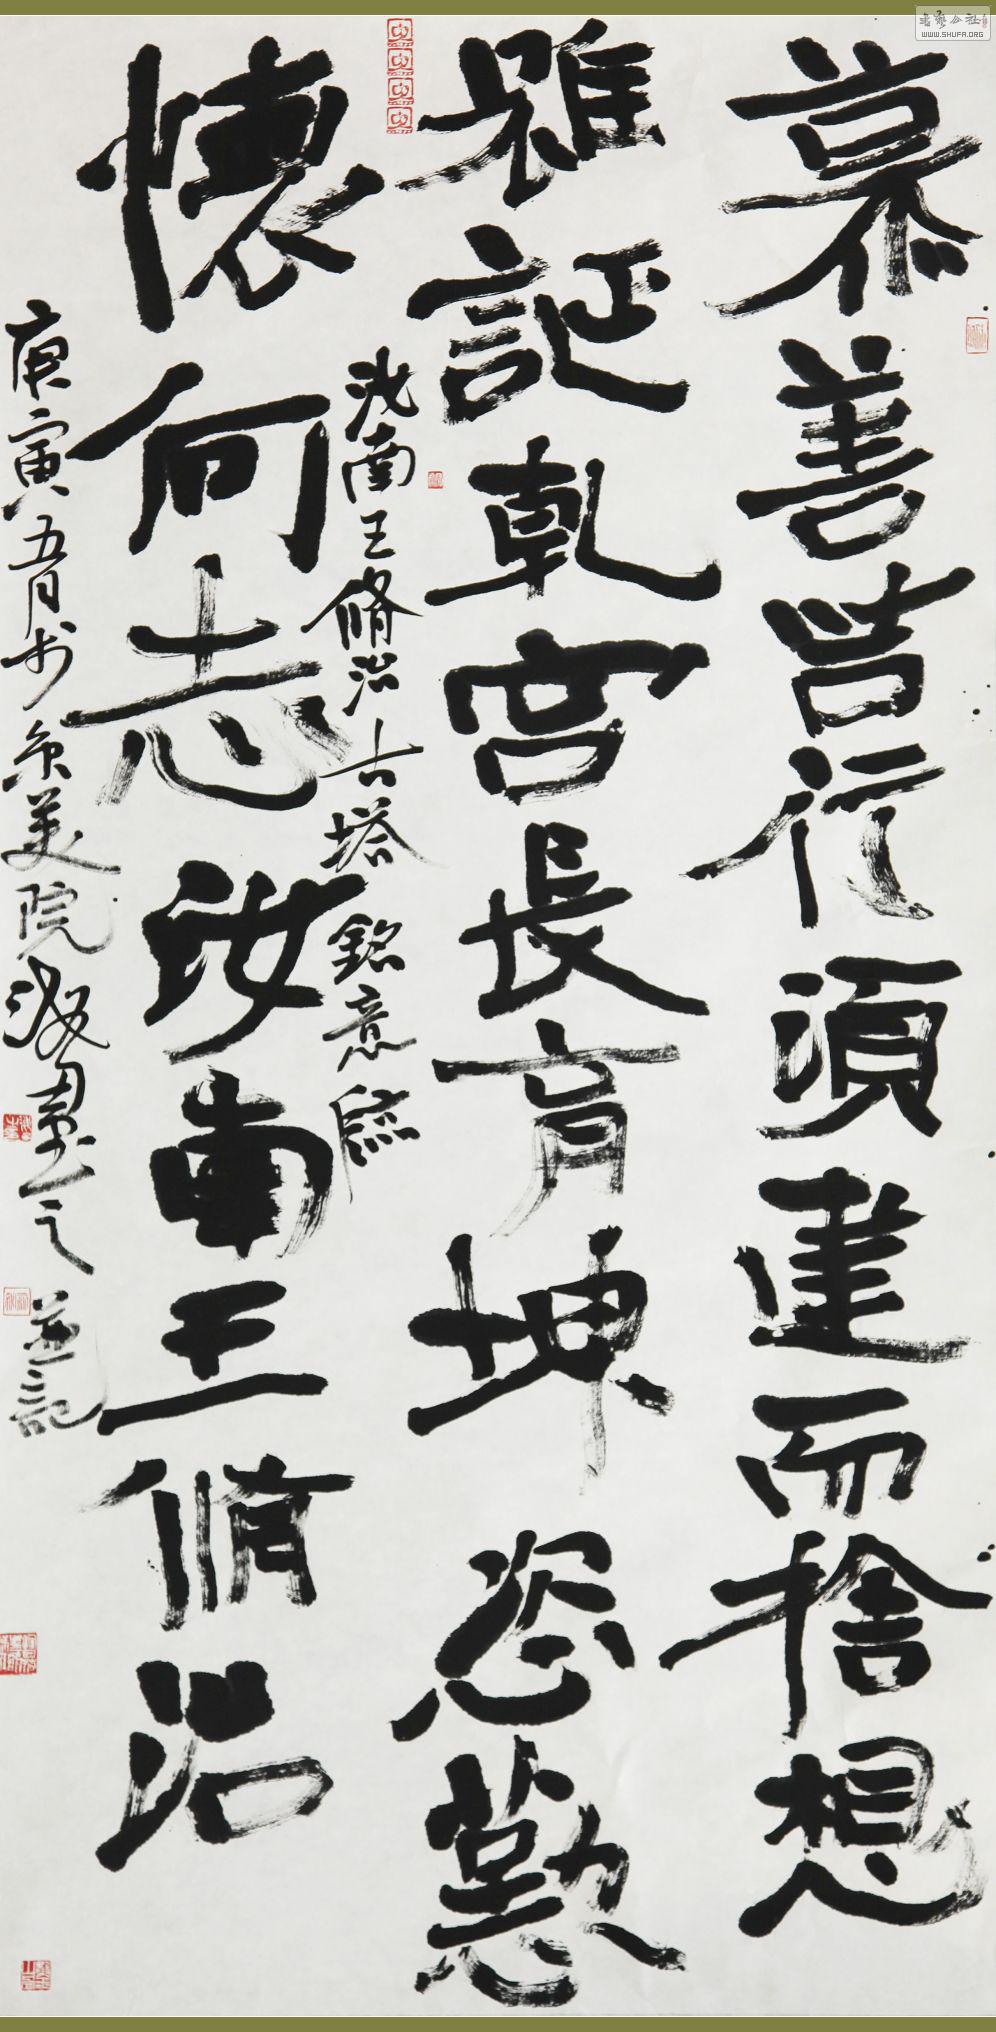 慕善苦行須建而捨想
雖誕乾宮長育坤恣懃
懷何志汝南王脩治
汝南王脩治古塔銘意臨
庚寅五月於京美院海
墨之並記
WWW.SHUFA.ORG